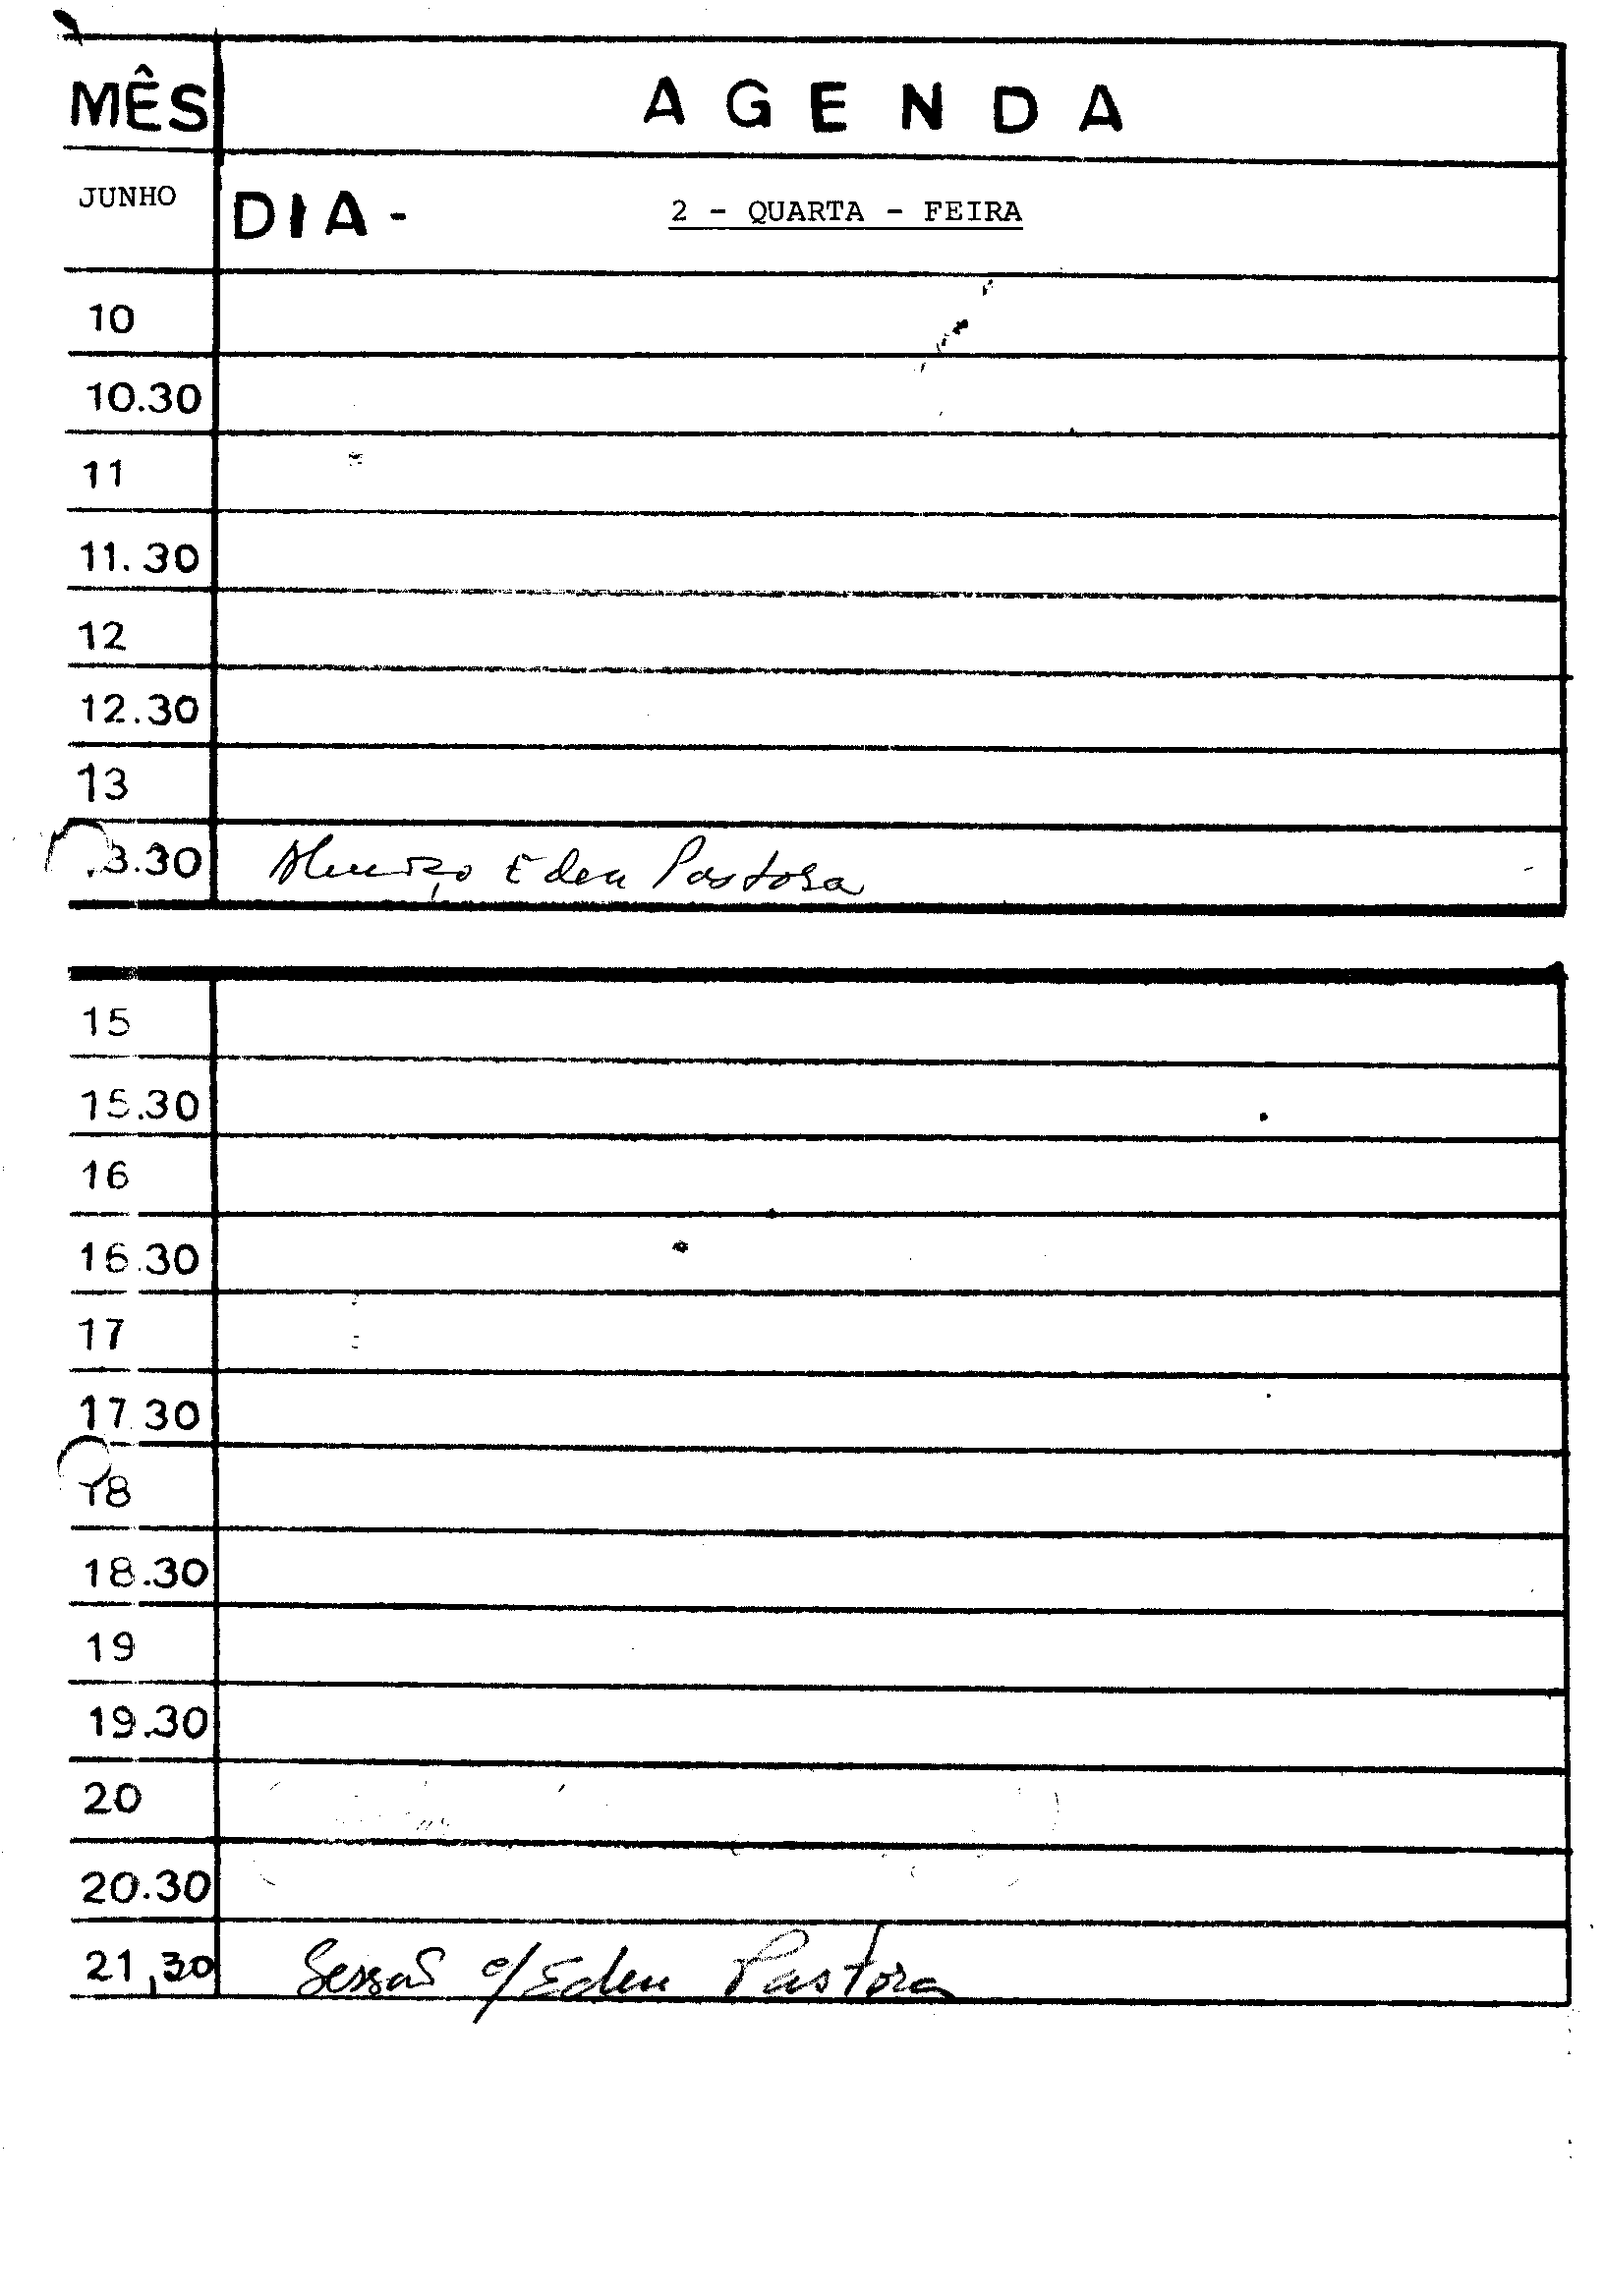 MÊS AGENDA
JUNHO DIA- 2 - QUARTA - FEIRA
10
10.30
11
11.30
12
12.30
13
13.30 Almoço Eden Pastora
15
15.30
16
16.30
17
17.30
18
18.30
19
19.30
20
20.30
21,30 Sessão c/Eden Pastora